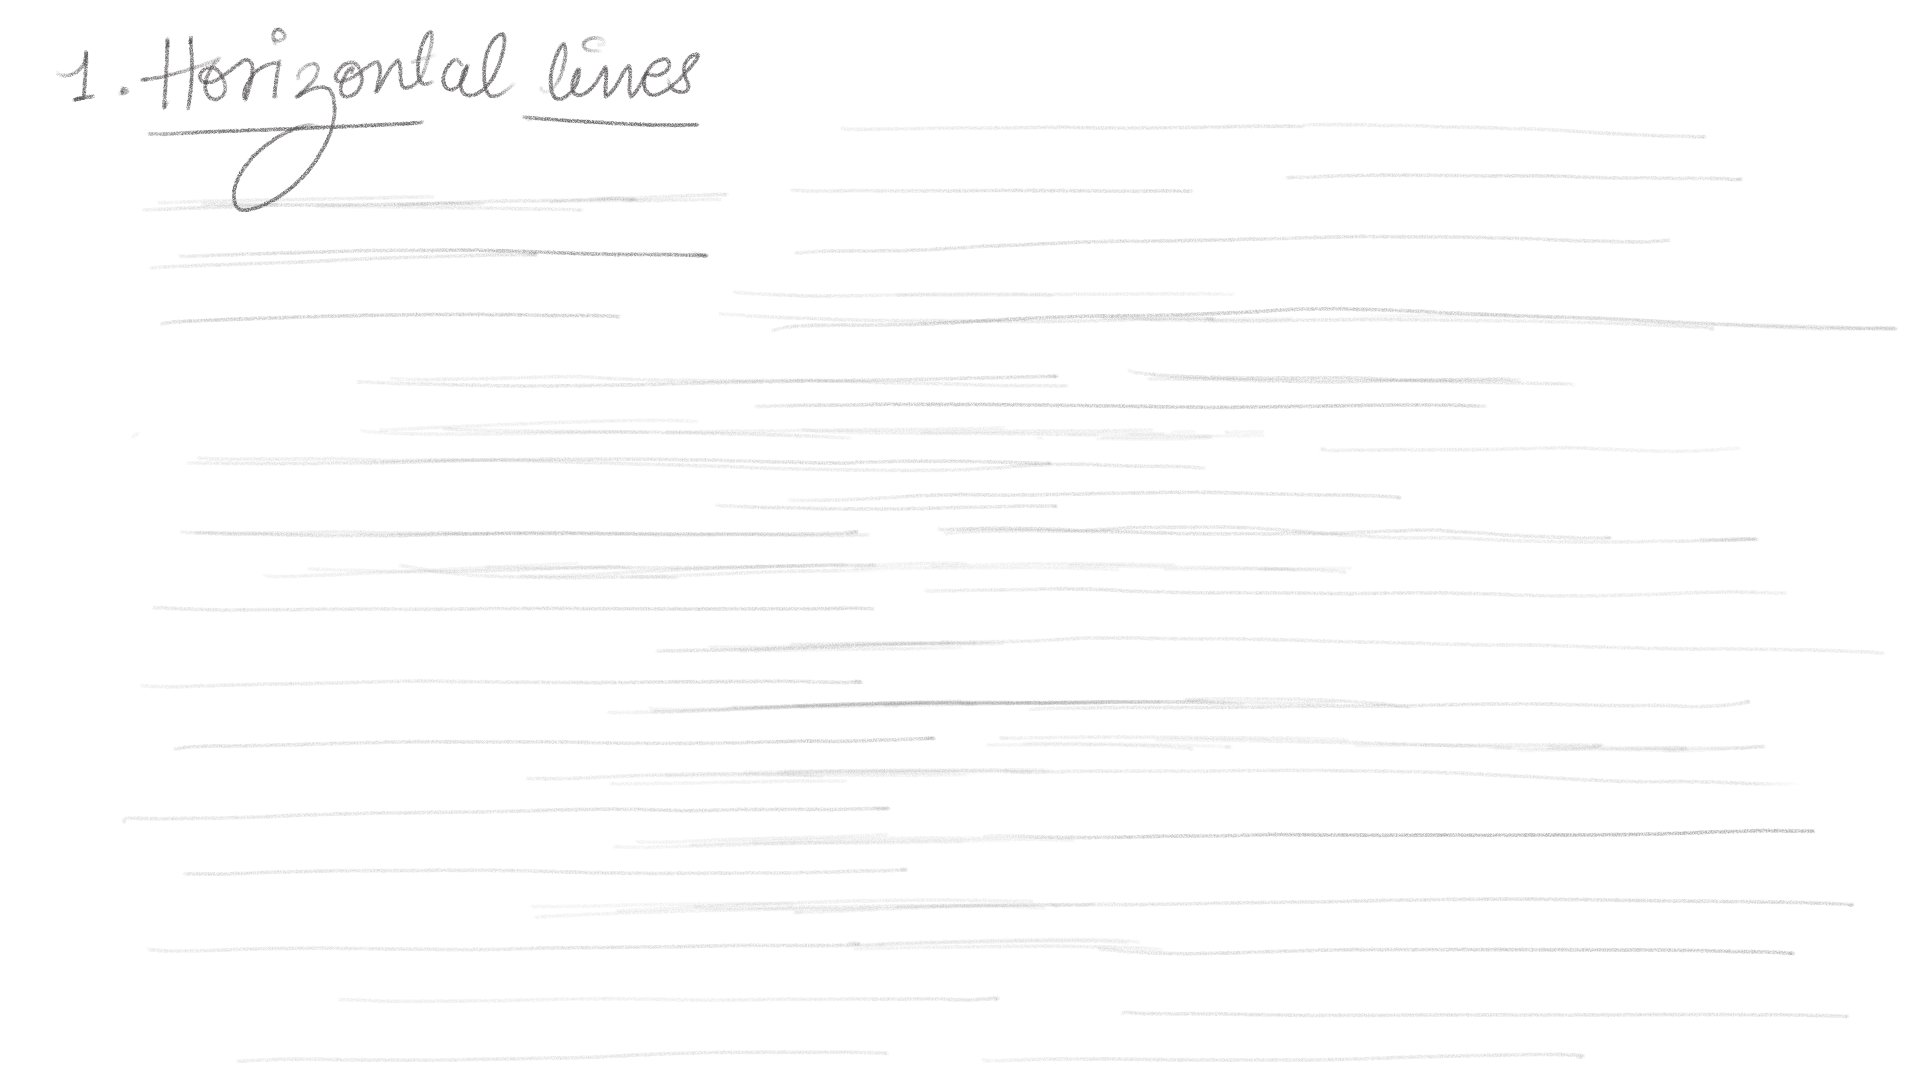 1. Horizontal lines